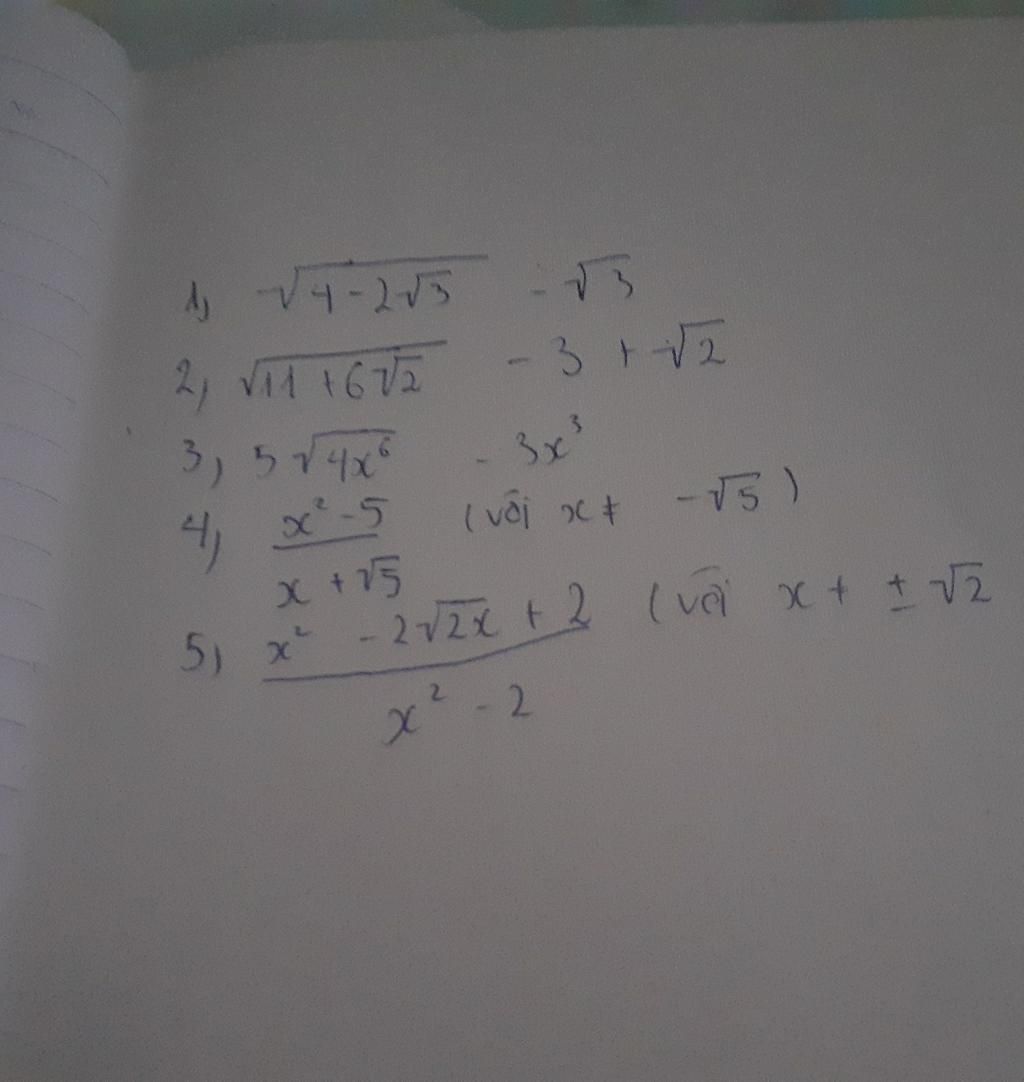 1, √(4-2√3) - √3
2, √(11+6√2) - 3 + √2
3, 5√(4x⁶) - 3x³
4, (x²-5)/(x+√5) (với x ≠ -√5)
5, (x² - 2√2x + 2)/(x² - 2) (với x ≠ ± √2